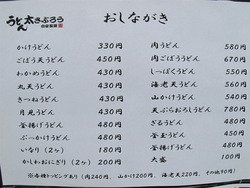 うどん 太さぶろう
自家製麺
おしながき
かけうどん 330円
ごぼう天うどん 450円
わかめうどん 430円
丸天うどん 430円
きつねうどん 430円
月見うどん 430円
釜揚げうどん 480円
ぶっかけうどん 480円
いなり (2ヶ) 180円
かしわおにぎり (2ヶ) 200円
肉うどん 580円
肉ごぼううどん 670円
しっぽくうどん 550円
海老天うどん 550円
山かけうどん 540円
天ぷらおろしうどん 780円
ざるうどん 480円
釜玉うどん 480円
釜揚げうどん 480円
大盛 100円
※各種トッピングあり (肉240円、山かけ200円、海老天220円、その他90円)